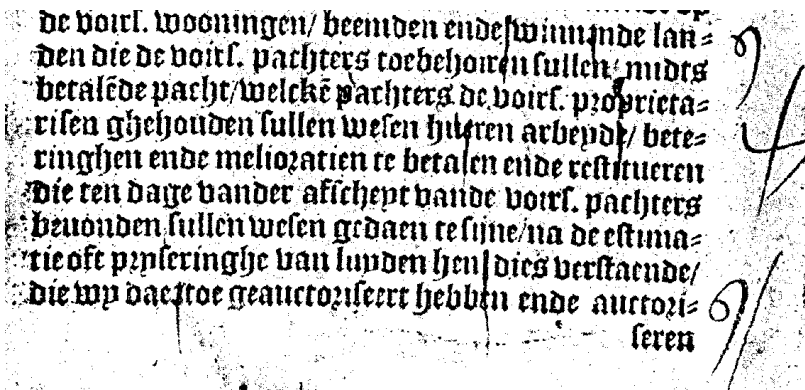 de voirs. wooningen/ beemden ende winnende lan⸗
den die de voirs. pachters toebehoiren sullen/ midts
betalēde pacht/welckē pachters de voirs. proprieta⸗
risen ghehouden sullen wesen hueren arbeydt/ bete⸗
ringhen ende melioratien te betalen ende restitueren
die ten dage vander affscheyt vande voirs. pachters
bevonden sullen wesen gedaen te sijne/na de estima⸗
tie oft prijseringhe van luyden hen dies verstaende/
die wy daertoe geauctoriseert hebben ende auctori⸗
seren